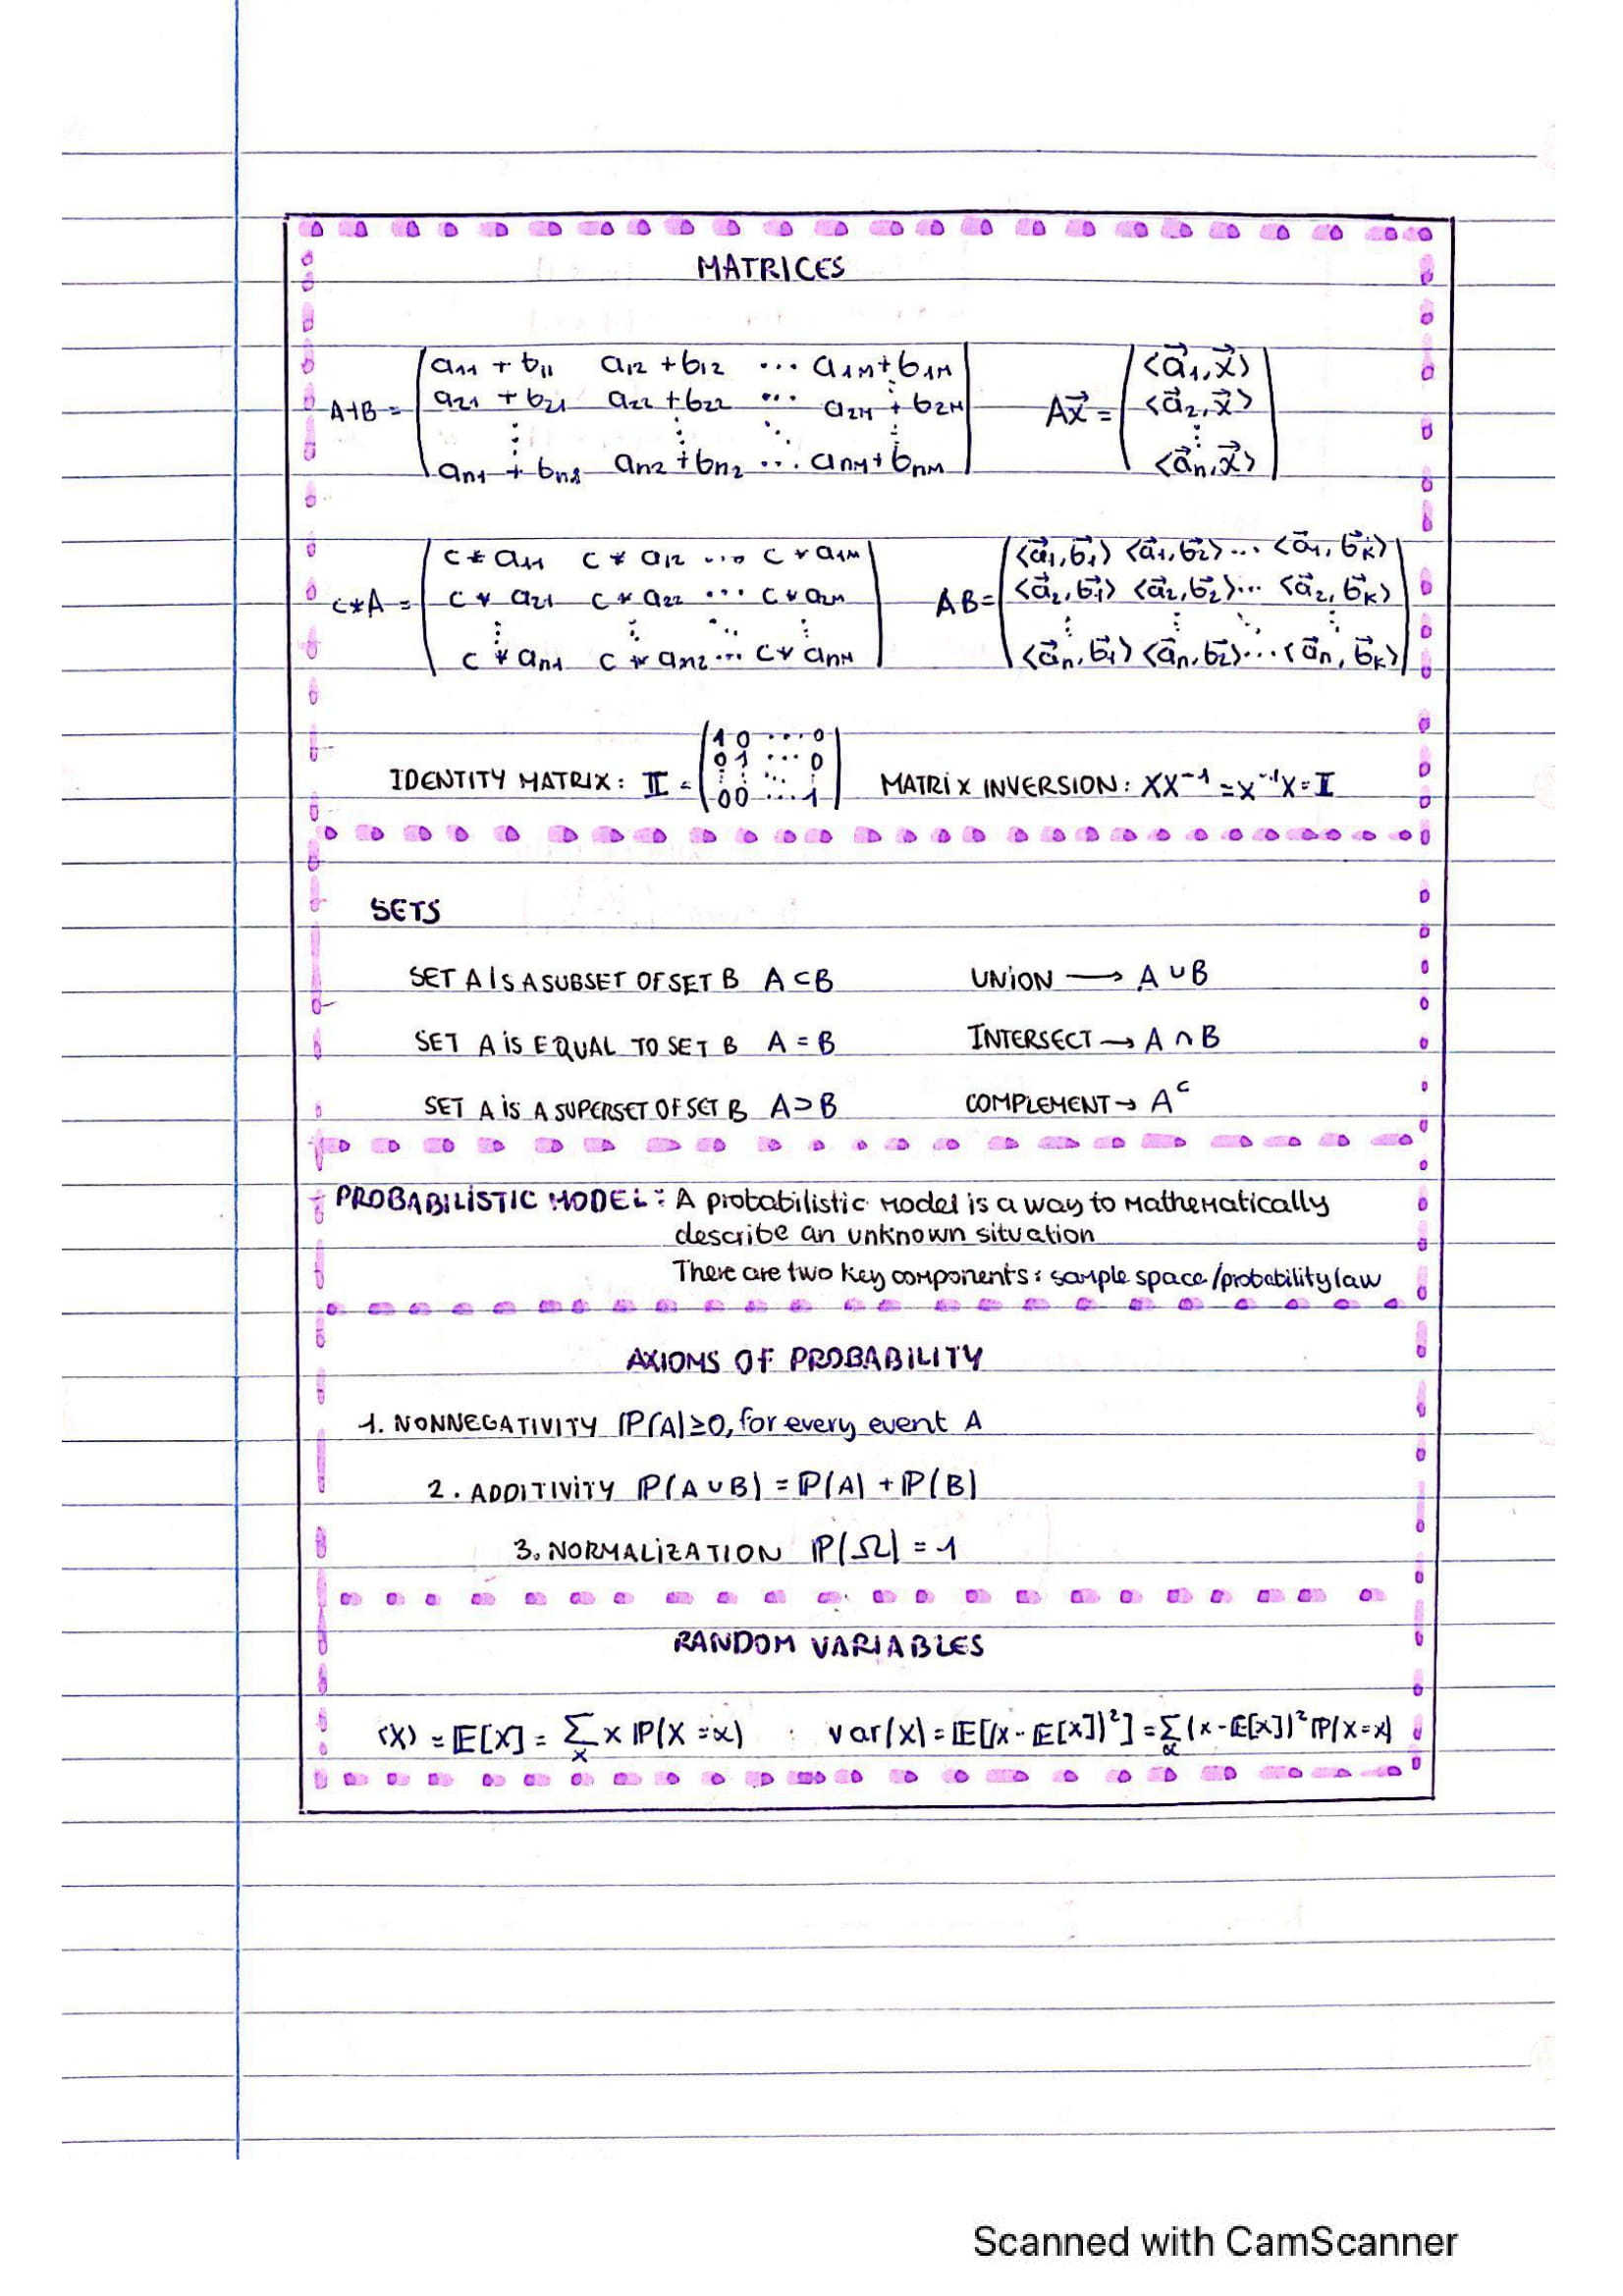 MATRICES
A+B = ( a11 + b11 a12 + b12 ... a1M + b1M
a21 + b21 a22 + b22 ... a2M + b2M
⋮ ⋮ ⋱ ⋮
an1 + bn1 an2 + bn2 ... anM + bnM )
Ax⃗ = ( <a⃗1, x⃗>
<a⃗2, x⃗>
⋮
<a⃗n, x⃗> )
c*A = ( c * a11 c * a12 ... c * a1M
c * a21 c * a22 ... c * a2M
⋮ ⋮ ⋱ ⋮
c * an1 c * an2 ... c * anM )
AB = ( <a⃗1, b⃗1> <a⃗1, b⃗2> ... <a⃗1, b⃗k>
<a⃗2, b⃗1> <a⃗2, b⃗2> ... <a⃗2, b⃗k>
⋮ ⋮ ⋱ ⋮
<a⃗n, b⃗1> <a⃗n, b⃗2> ... <a⃗n, b⃗k> )
IDENTITY MATRIX: II = ( 1 0 ... 0
0 1 ... 0
⋮ ⋮ ⋱
0 0 ... 1 )
MATRIX INVERSION: XX⁻¹ = X⁻¹X = I
SETS
SET A IS A SUBSET OF SET B A ⊂ B UNION → A ∪ B
SET A IS EQUAL TO SET B A = B INTERSECT → A ∩ B
SET A IS A SUPERSET OF SET B A ⊃ B COMPLEMENT → Aᶜ
PROBABILISTIC MODEL: A probabilistic model is a way to mathematically
describe an unknown situation
There are two key components: sample space/probability law
AXIOMS OF PROBABILITY
1. NONNEGATIVITY ℙ(A) ≥ 0, for every event A
2. ADDITIVITY ℙ(A ∪ B) = ℙ(A) + ℙ(B)
3. NORMALIZATION ℙ(Ω) = 1
RANDOM VARIABLES
(X) = 𝔼[X] = Σx x ℙ(X = x) var(X) = 𝔼[(X - 𝔼[X])²] = Σx (x - 𝔼[X])² ℙ(X = x)
Scanned with CamScanner